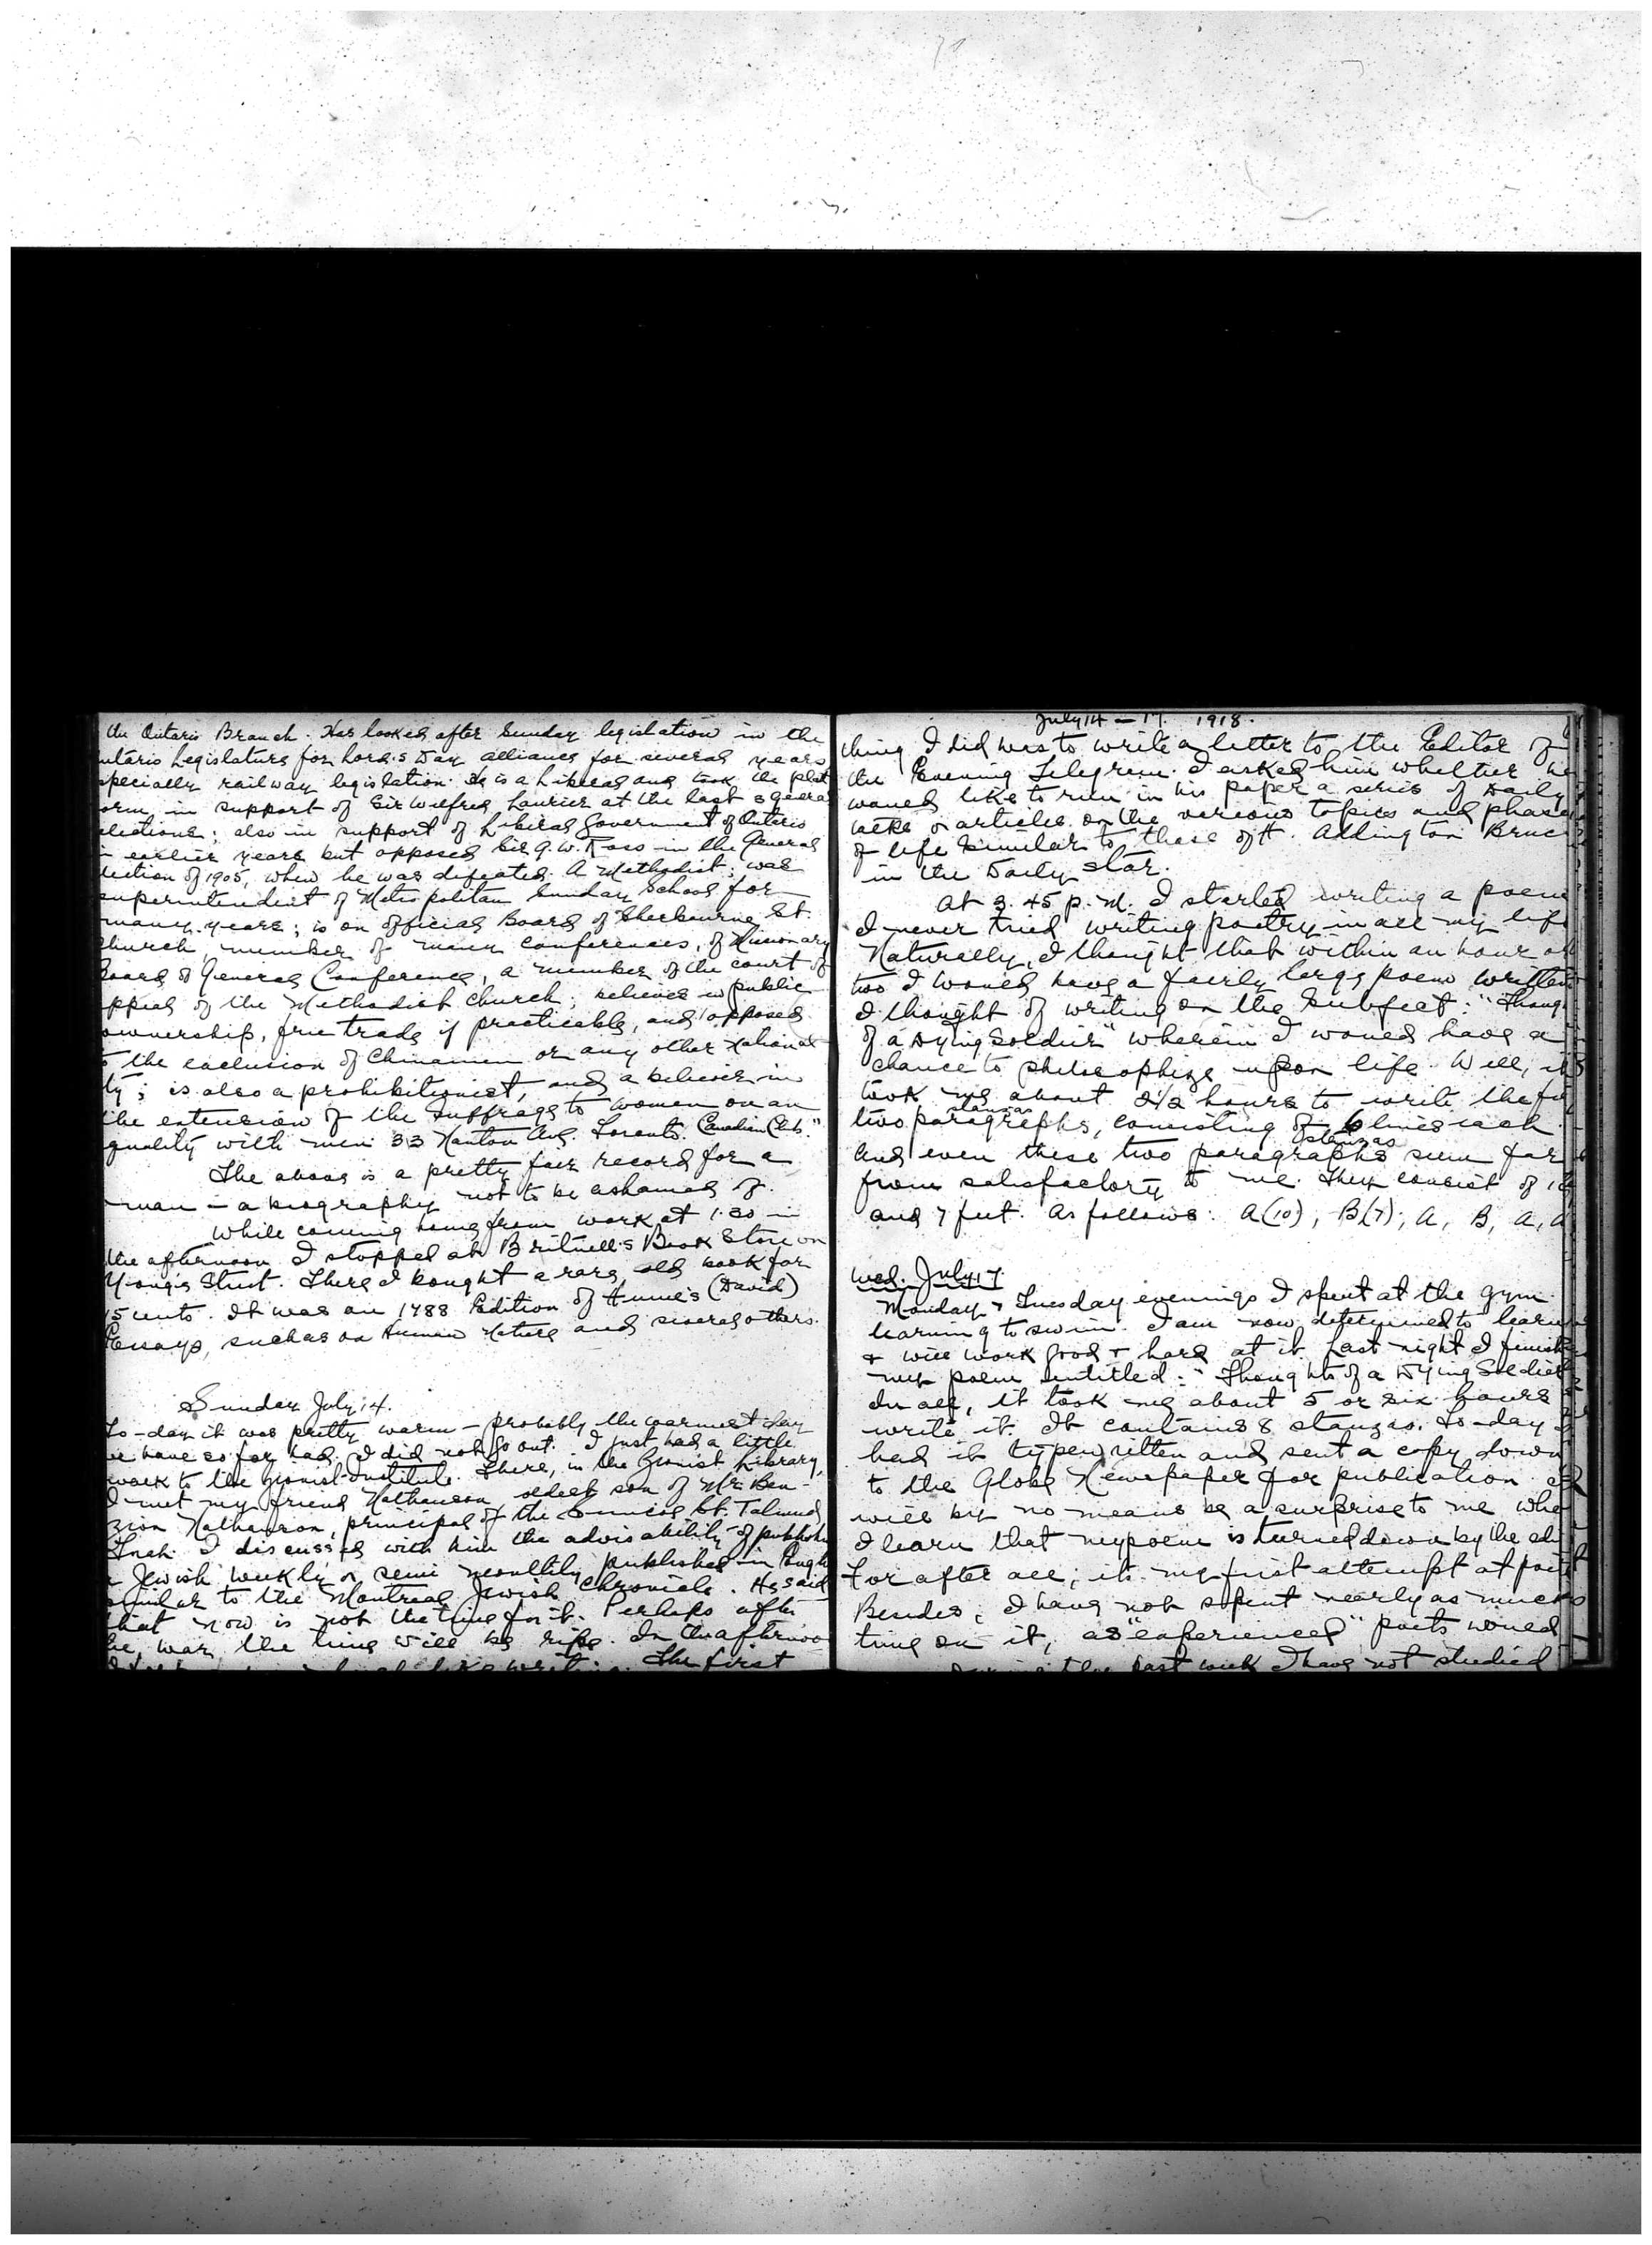 the Ontario Branch. Has looked after Sunday legislation in the
ntario Legislature for Lord's Day alliance for several years
specially railway legislation. He is a Liberal and took the plat
orm in support of Sir Wilfred Laurier at the last 3 genera
elections; also in support of Liberal Government of Ontario
in earlier years but opposed Sir G. W. Ross in the General
lection of 1905, when he was defeated. A Methodist; was
superintendent of Metropolitan Sunday School for
many years; is on official Board of Sherbourne St.
church, member of many conferences, of Missionary
Board of General Conference, a member of the court of
appeal of the Methodist church; believes in public
ownership, free trade if practicable, and opposed
to the exclusion of Chinamen or any other national
ty; is also a prohibitionist, and a believer in
the extension of the suffrage to women on an
quality with men. 33 Hanton Ave. Toronto. Canadian Club."
The above is a pretty fair record for a
man - a biography not to be ashamed of.
While coming home from work at 1.30 in
the afternoon I stopped at Britnell's Book Store on
Yonge Street. There I bought a rare, old book for
15 cents. It was an 1788 Edition of Hume's (David)
Essays, such as on Human Nature and several others.
Sunday July 14.
To-day it was pretty warm - probably the warmest day
we have so far had. I did not go out. I just had a little
walk to the Zionist Institute. There, in the Zionist Library,
I met my friend Nathanson, oldest son of Mr. Ben-
zion Nathanson, principal of the Simcoe St. Talmud
Torah. I discussed with him the advisability of publishi
a Jewish weekly or semi monthly published in Engli
similar to the Montreal Jewish Chronicle. He said
that now is not the time for it. Perhaps after
he war the time will be ripe. In the afternoo
The first
July 14 - 17. 1918.
thing I did was to write a letter to the Editor of
the Evening Telegram. I asked him whether he
would like to run in his paper a series of Daily
talks or articles on the various topics and phase
of life similar to those of H. Addington Bruc
in the Daily Star.
At 3.45 p.m. I started writing a poem
I never tried writing poetry in all my life
Naturally, I thought that within an hour or
two I would have a fairly large poem written
I thought of writing on the subject: "Thoug
of a Dying Soldier" wherein I would have a
chance to philosophize upon life. Well, it
took me about 2 1/2 hours to write the fir
stanzas
two paragraphs, consisting of 6 lines each
stanzas
And even these two paragraphs seem far
from satisfactory to me. They consist of 10
and 7 feet. As follows: A(10), B(7); A, B, A, A
Wed. July 17
Monday & Tuesday evenings I spent at the gym
learning to swim. I am now determined to learn
& will work good & hard at it. Last night I finish
my poem entitled: "Thoughts of a Dying Soldier
In all, it took me about 5 or six hours
write it. It contains 8 stanzas. To-day I
had it typewritten and sent a copy down
to the Globe Newspaper for publication. It
will by no means be a surprise to me whe
I learn that my poem is turned down by the edi
For after all; its my first attempt at poet
Besides, I have not spent nearly as much
time on it, as "experienced" poets would
the past week I have not studied